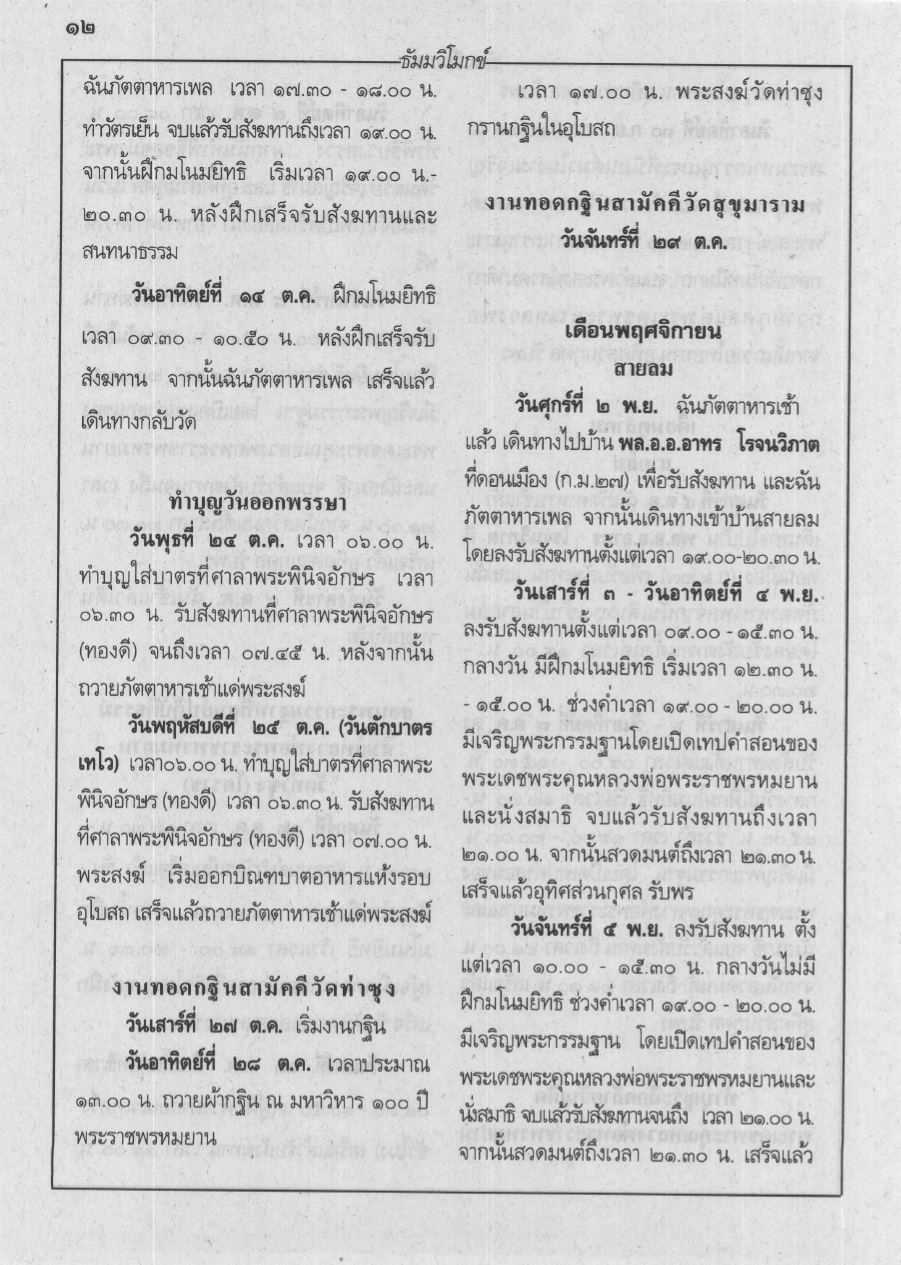 ๑๒
ธัมมวิโมกข์
ฉันภัตตาหารเพล เวลา ๑๗.๓๐ - ๑๘.๐๐ น.
ทำวัตรเย็น จบแล้วรับสังฆทานถึงเวลา ๑๙.๐๐ น.
จากนั้นฝึกมโนมยิทธิ เริ่มเวลา ๑๙.๐๐ น.-
๒๐.๓๐ น. หลังฝึกเสร็จรับสังฆทานและ
สนทนาธรรม
วันอาทิตย์ที่ ๑๔ ต.ค. ฝึกมโนมยิทธิ
เวลา ๐๙.๓๐ - ๑๐.๕๐ น. หลังฝึกเสร็จรับ
สังฆทาน จากนั้นฉันภัตตาหารเพล เสร็จแล้ว
เดินทางกลับวัด
ทำบุญวันออกพรรษา
วันพุธที่ ๒๔ ต.ค. เวลา ๐๖.๐๐ น.
ทำบุญใส่บาตรที่ศาลาพระพินิจอักษร เวลา
๐๖.๓๐ น. รับสังฆทานที่ศาลาพระพินิจอักษร
(ทองดี) จนถึงเวลา ๐๗.๔๕ น. หลังจากนั้น
ถวายภัตตาหารเช้าแด่พระสงฆ์
วันพฤหัสบดีที่ ๒๕ ต.ค. (วันตักบาตร
เทโว) เวลา๐๖.๐๐ น. ทำบุญใส่บาตรที่ศาลาพระ
พินิจอักษร (ทองดี) เวลา ๐๖.๓๐ น. รับสังฆทาน
ที่ศาลาพระพินิจอักษร (ทองดี) เวลา ๐๗.๐๐ น.
พระสงฆ์ เริ่มออกบิณฑบาตอาหารแห้งรอบ
อุโบสถ เสร็จแล้วถวายภัตตาหารเช้าแด่พระสงฆ์
งานทอดกฐินสามัคคีวัดท่าซุง
วันเสาร์ที่ ๒๗ ต.ค. เริ่มงานกฐิน
วันอาทิตย์ที่ ๒๘ ต.ค. เวลาประมาณ
๑๓.๐๐ น. ถวายผ้ากฐิน ณ มหาวิหาร ๑๐๐ ปี
พระราชพรหมยาน
เวลา ๑๗.๐๐ น. พระสงฆ์วัดท่าซุง
กรานกฐินในอุโบสถ
งานทอดกฐินสามัคคีวัดสุขุมาราม
วันจันทร์ที่ ๒๙ ต.ค.
เดือนพฤศจิกายน
สายลม
วันศุกร์ที่ ๒ พ.ย. ฉันภัตตาหารเช้า
แล้ว เดินทางไปบ้าน พล.อ.อ.อาทร โรจนวิภาต
ที่ดอนเมือง (ก.ม.๒๗) เพื่อรับสังฆทาน และฉัน
ภัตตาหารเพล จากนั้นเดินทางเข้าบ้านสายลม
โดยลงรับสังฆทานตั้งแต่เวลา ๑๙.๐๐-๒๐.๓๐ น.
วันเสาร์ที่ ๓ - วันอาทิตย์ที่ ๔ พ.ย.
ลงรับสังฆทานตั้งแต่เวลา ๐๙.๐๐ - ๑๕.๓๐ น.
กลางวัน มีฝึกมโนมยิทธิ เริ่มเวลา ๑๒.๓๐ น.
- ๑๕.๐๐ น. ช่วงค่ำเวลา ๑๙.๐๐ - ๒๐.๐๐ น.
มีเจริญพระกรรมฐานโดยเปิดเทปคำสอนของ
พระเดชพระคุณหลวงพ่อพระราชพรหมยาน
และนั่งสมาธิ จบแล้วรับสังฆทานถึงเวลา
๒๑.๐๐ น. จากนั้นสวดมนต์ถึงเวลา ๒๑.๓๐ น.
เสร็จแล้วอุทิศส่วนกุศล รับพร
วันจันทร์ที่ ๕ พ.ย. ลงรับสังฆทาน ตั้ง
แต่เวลา ๑๐.๐๐ - ๑๕.๓๐ น. กลางวันไม่มี
ฝึกมโนมยิทธิ ช่วงค่ำเวลา ๑๙.๐๐ - ๒๐.๐๐ น.
มีเจริญพระกรรมฐาน โดยเปิดเทปคำสอนของ
พระเดชพระคุณหลวงพ่อพระราชพรหมยานและ
นั่งสมาธิ จบแล้วรับสังฆทานจนถึง เวลา ๒๑.๐๐ น.
จากนั้นสวดมนต์ถึงเวลา ๒๑.๓๐ น. เสร็จแล้ว